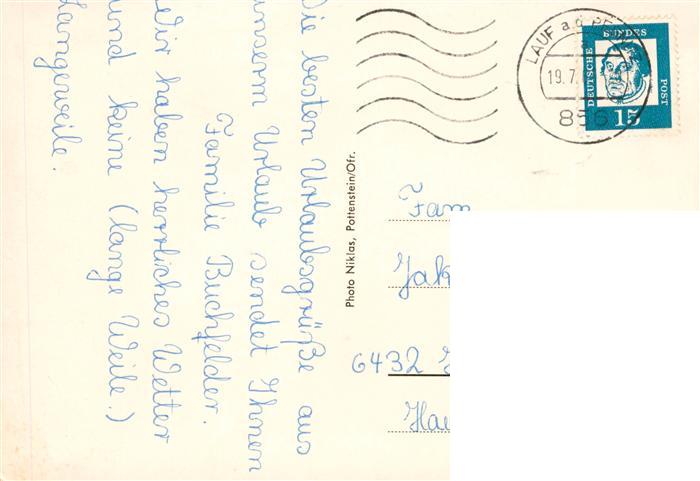 Die besten Urlaubsgrüße aus
unserm Urlaub sendet Ihnen
Familie Buchfelder.
Wir haben herrliches Wetter
und keine (lange Weile.)
Langeweile.
Photo Niklas, Pottenstein/Ofr.
LAUF a.d. PE
19.7.
856
DEUTSCHE BUNDES POST
15
Fam
Jak
6432
Hau